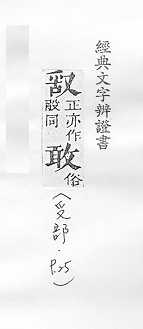 經典文字辨證書
正亦作
同
敢俗
(受部.P25)